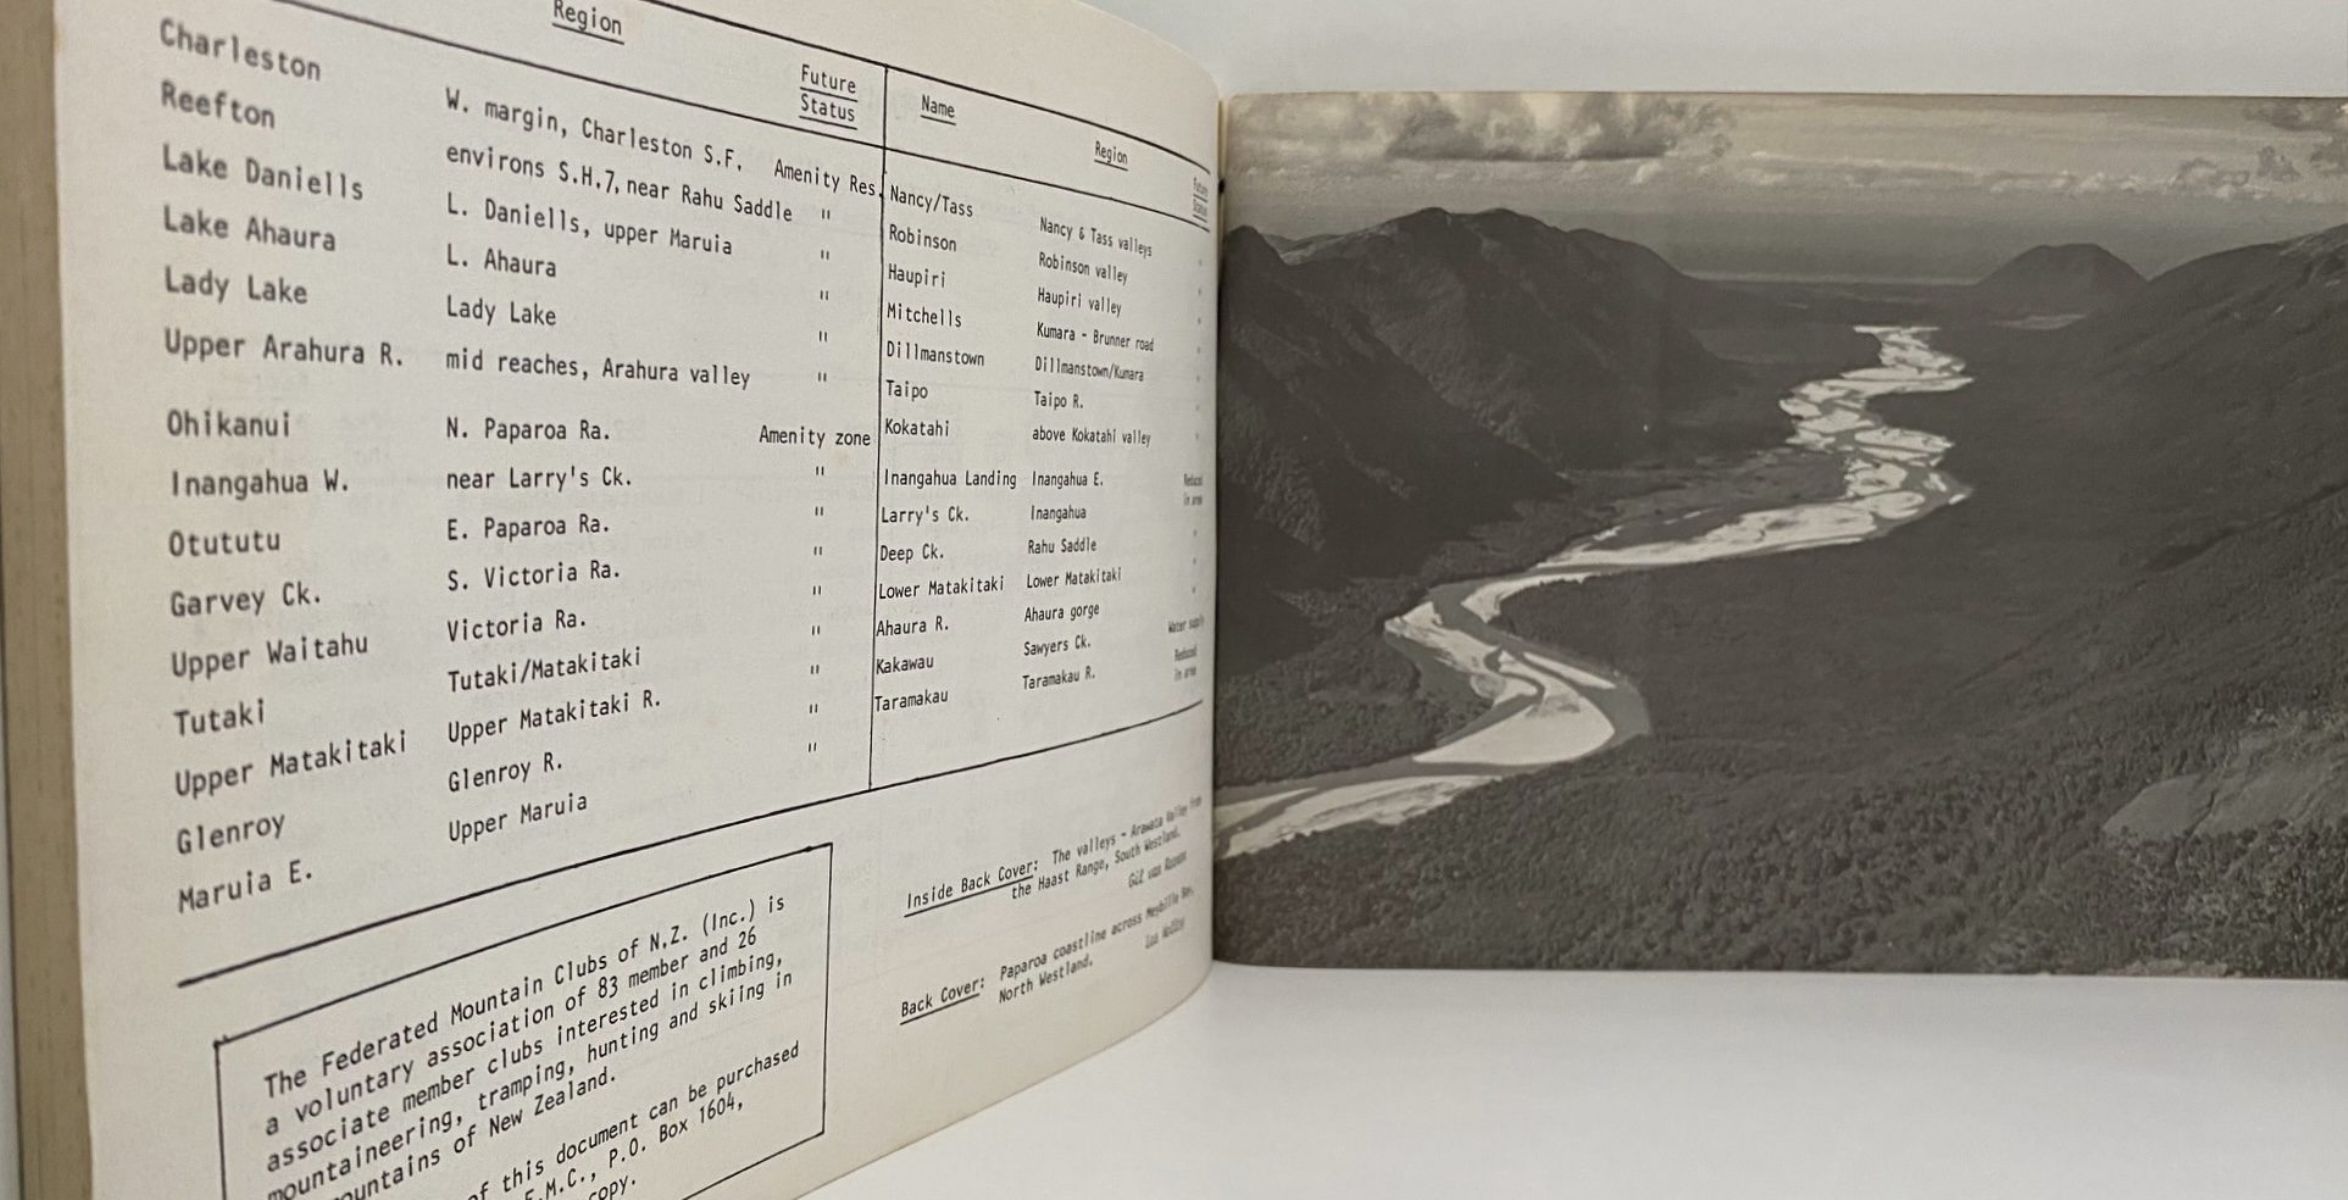 Region Future
Status
Charleston W. margin, Charleston S.F. Amenity Res.
Reefton environs S.H.7, near Rahu Saddle "
Lake Daniells L. Daniells, upper Maruia "
Lake Ahaura L. Ahaura "
Lady Lake Lady Lake "
Upper Arahura R. mid reaches, Arahura valley "
Ohikanui N. Paparoa Ra. Amenity zone
Inangahua W. near Larry's Ck. "
Otututu E. Paparoa Ra. "
Garvey Ck. S. Victoria Ra. "
Upper Waitahu Victoria Ra. "
Tutaki Tutaki/Matakitaki "
Upper Matakitaki Upper Matakitaki R. "
Glenroy Glenroy R. "
Maruia E. Upper Maruia "
Name Region Future
Status
Nancy/Tass Nancy & Tass valleys
Robinson Robinson valley
Haupiri Haupiri valley
Mitchells Kumara - Brunner road
Dillmanstown Dillmanstown/Kumara
Taipo Taipo R.
Kokatahi above Kokatahi valley
Inangahua Landing Inangahua E. Reduced
in area
Larry's Ck. Inangahua
Deep Ck. Rahu Saddle
Lower Matakitaki Lower Matakitaki
Ahaura R. Ahaura gorge
Kakawau Sawyers Ck. Water
Taramakau Taramakau R. Reduced
in area
The Federated Mountain Clubs of N.Z. (Inc.) is
a voluntary association of 83 member and 26
associate member clubs interested in climbing,
mountaineering, tramping, hunting and skiing in
ountains of New Zealand.
of this document can be purchased
F.M.C., P.O. Box 1604,
copy.
Inside Back Cover: The valleys - Arawata Valley from
the Haast Range, South Westland.
Back Cover: Paparoa coastline across
North Westland.